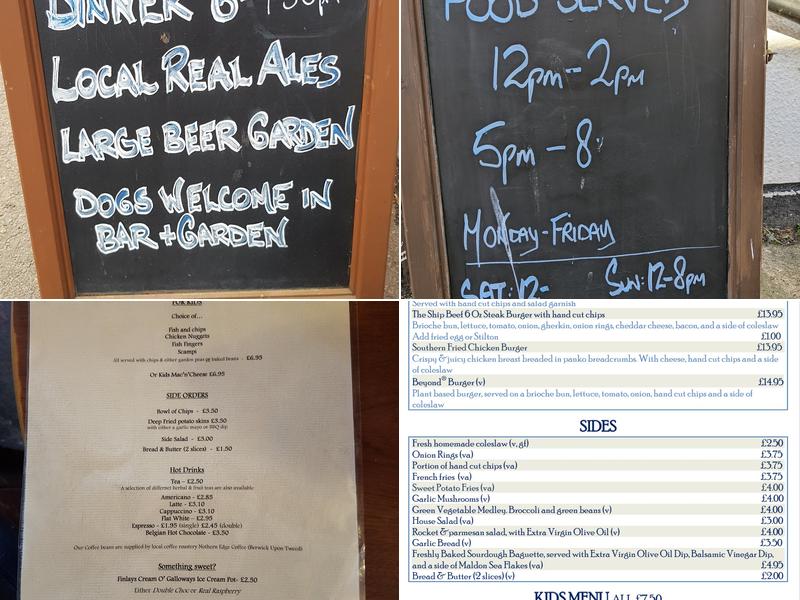 DINNER 6-
LOCAL REAL ALES
LARGE BEER GARDEN
DOGS WELCOME IN
BAR + GARDEN
FOOD SERVED
12pm - 2pm
5pm - 8
MONDAY - FRIDAY
SAT: 12-
SUN: 12-8pm
FOR KIDS
Choice of...
Fish and chips
Chicken Nuggets
Fish Fingers
Scampi
All served with chips & either garden peas or baked beans - £6.95
Or Kids Mac'n'Cheese £6.95
SIDE ORDERS
Bowl of Chips - £3.50
Deep Fried potato skins £3.50
with either a garlic mayo or BBQ dip
Side Salad - £3.00
Bread & Butter (2 slices) - £1.50
Hot Drinks
Tea – £2.50
A selection of differnet herbal & fruit teas are also available
Americano - £2.85
Latte - £3.10
Cappuccino - £3.10
Flat White – £2.95
Espresso - £1.95 (single) £2.45 (double)
Belgian Hot Chocolate - £3.50
Our Coffee beans are supplied by local coffee roastery Nothern Edge Coffee (Berwick Upon Tweed)
Something sweet?
Finlays Cream O' Galloways Ice Cream Pot- £2.50
Either Double Choc or Real Raspberry
Served with hand cut chips and salad garnish
The Ship Beef 6 Oz Steak Burger with hand cut chips £13.95
Brioche bun, lettuce, tomato, onion, gherkin, onion rings, cheddar cheese, bacon, and a side of coleslaw
Add fried egg or Stilton £1.00
Southern Fried Chicken Burger £13.95
Crispy & juicy chicken breast breaded in panko breadcrumbs. With cheese, hand cut chips and a side
of coleslaw
Beyond® Burger (v) £14.95
Plant based burger, served on a brioche bun, lettuce, tomato, onion, hand cut chips and a side of
coleslaw
SIDES
Fresh homemade coleslaw (v, gf) £2.50
Onion Rings (va) £3.75
Portion of hand cut chips (va) £3.75
French fries (va) £3.75
Sweet Potato Fries (va) £4.00
Garlic Mushrooms (v) £4.00
Green Vegetable Medley. Broccoli and green beans (v) £4.00
House Salad (va) £3.00
Rocket & parmesan salad, with Extra Virgin Olive Oil (v) £4.00
Garlic Bread (v) £3.50
Freshly Baked Sourdough Baguette, served with Extra Virgin Olive Oil Dip, Balsamic Vinegar Dip,
and a side of Maldon Sea Flakes (va) £4.95
Bread & Butter (2 slices) (v) £2.00
KIDS MENU ALL £7.50